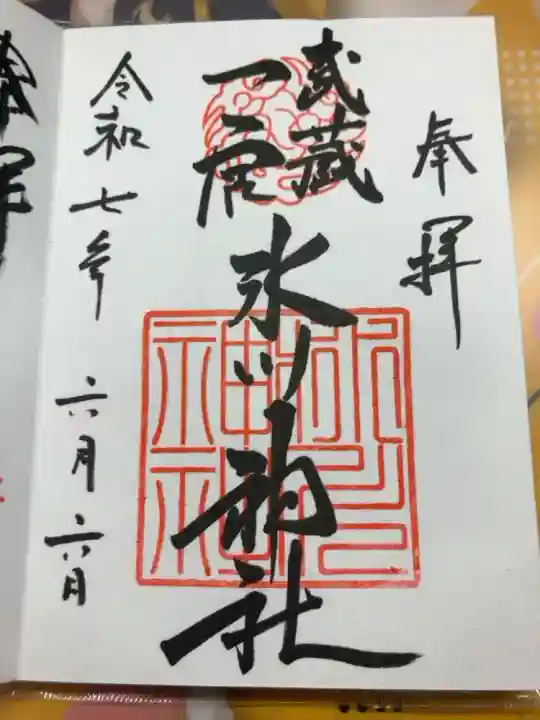 奉拝
武蔵
一宮
氷川神社
令和七年
六月六日
氷川
神社